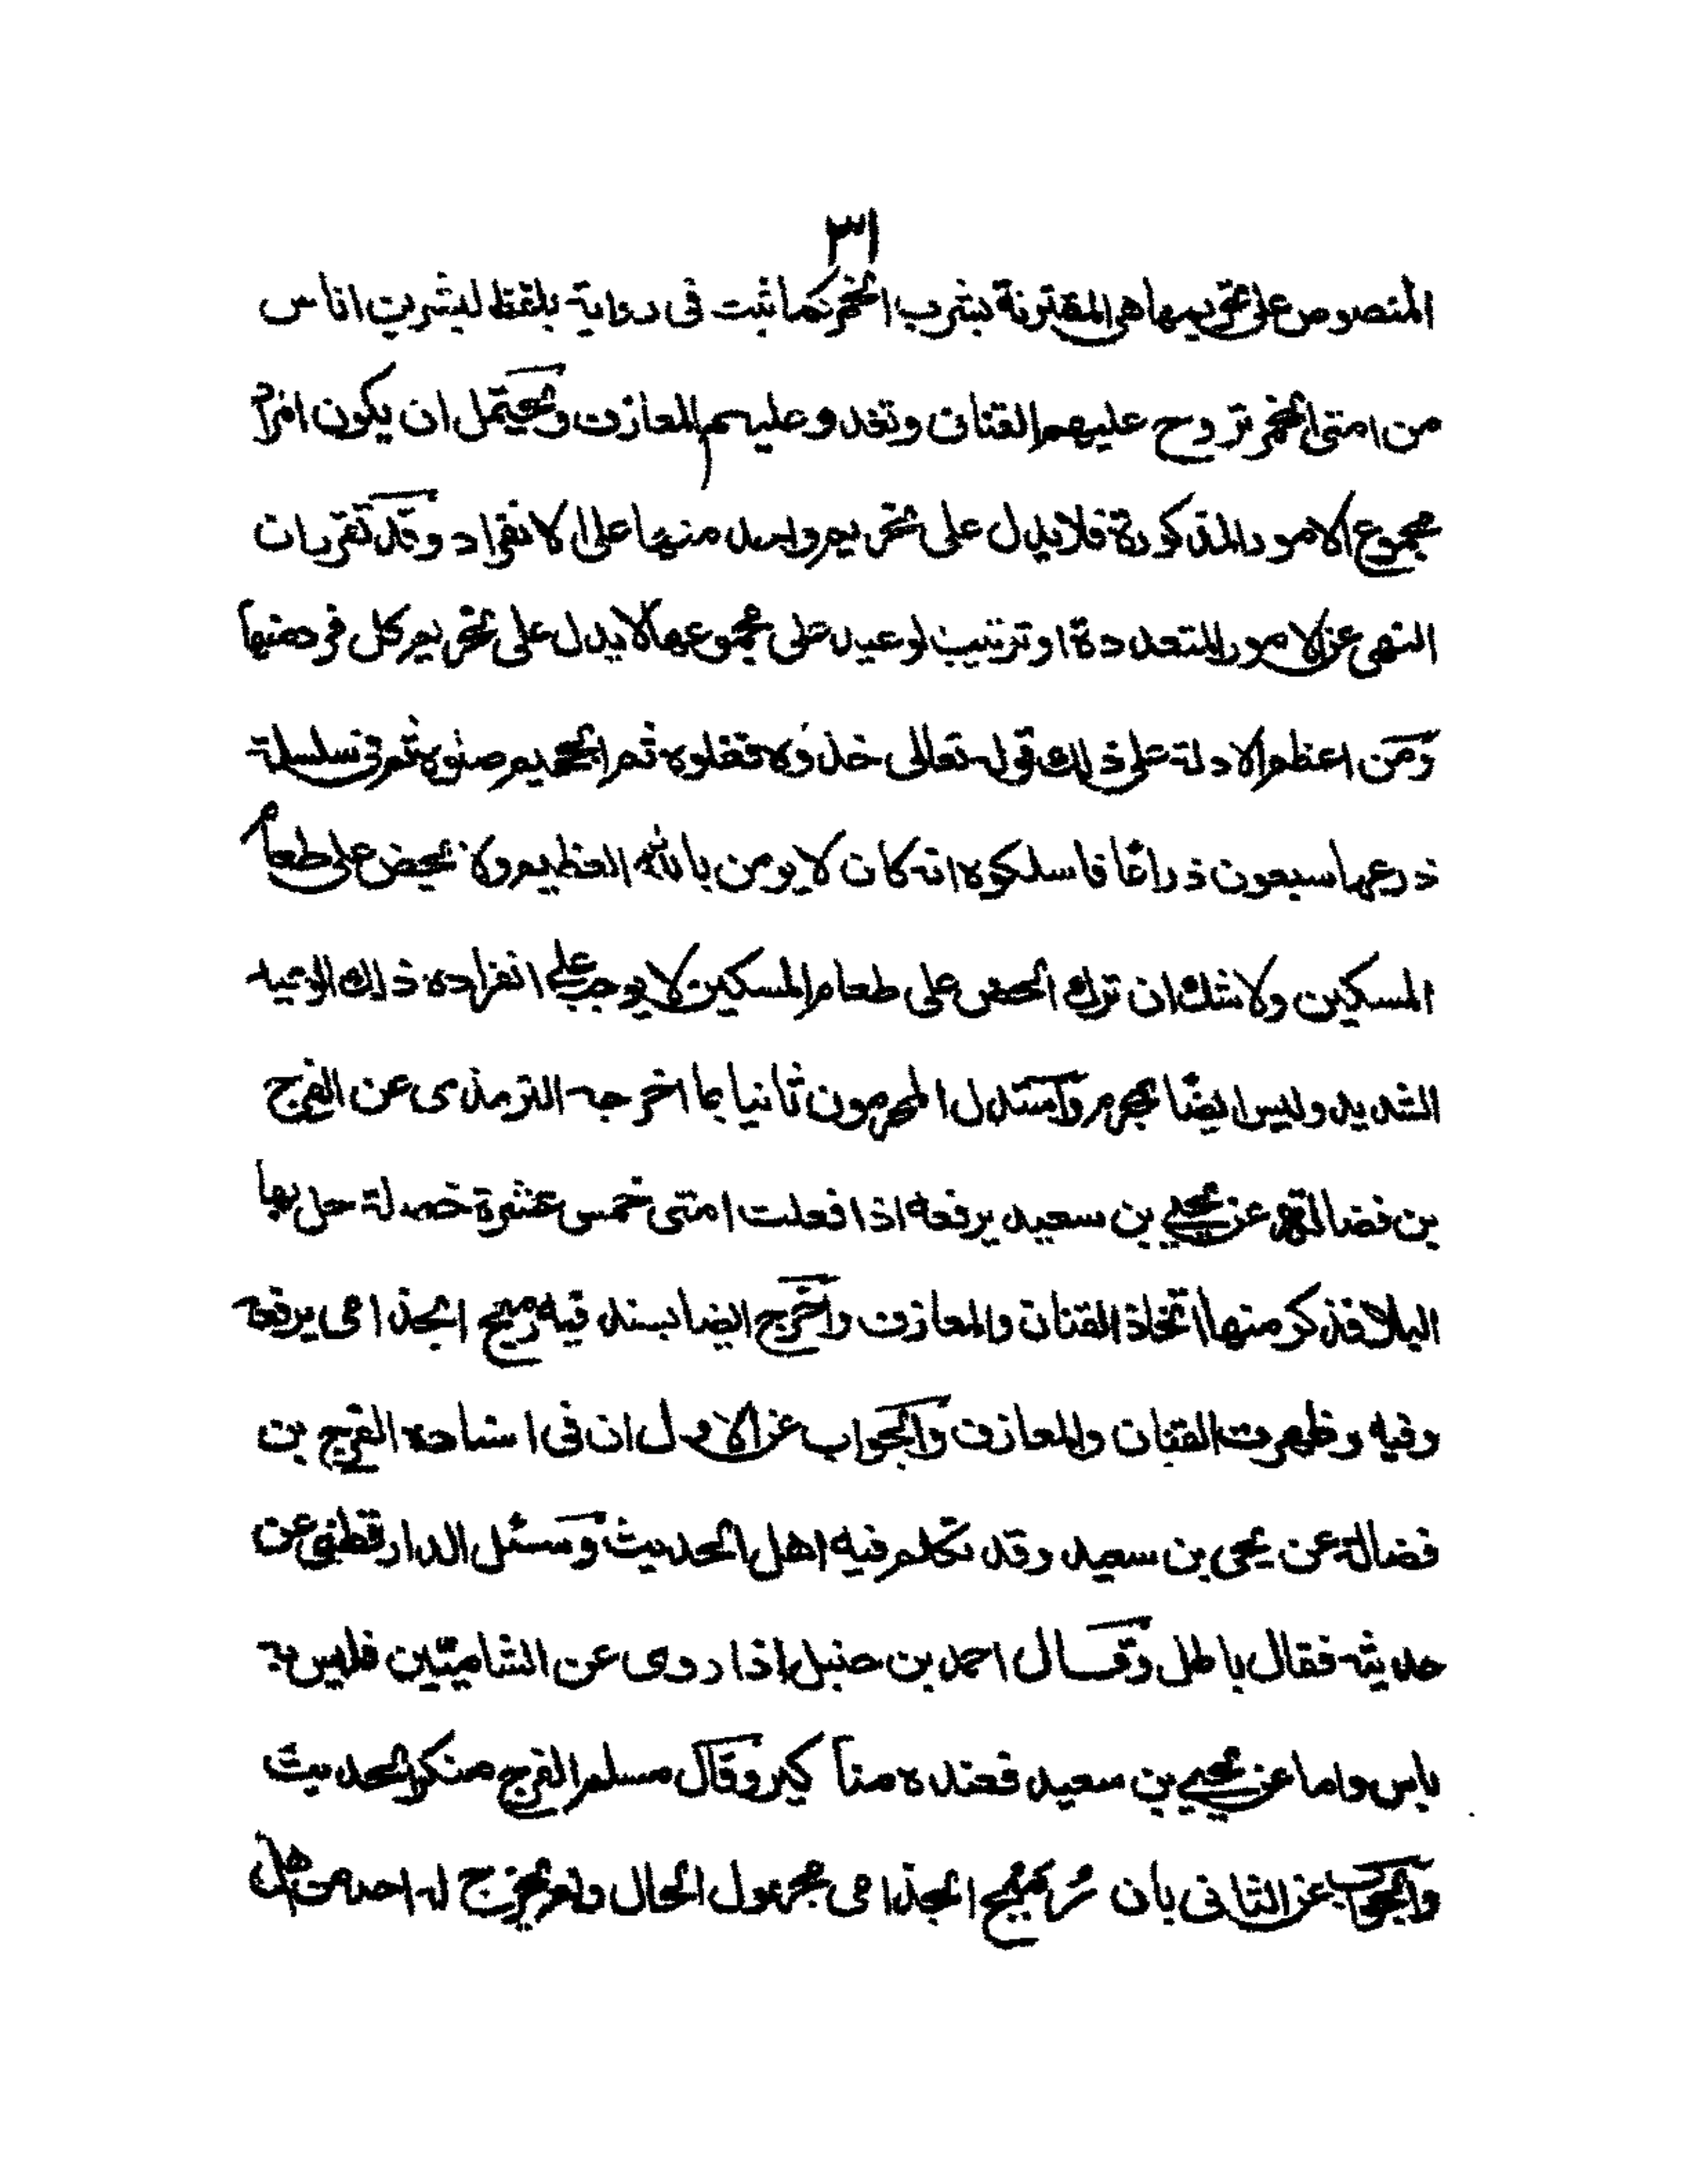 ٣١
المنصوص على تحريمها هي المقترنة بشرب الخمر كما ثبت في رواية بلفظ ليشربن اناس
من امتى الخمر تروح عليهم القنان وتغدو عليهم المعازف ويحتمل ان يكون المراد
مجموع الامور المذكورة فلا يدل على تحريم واحد منها على الانفراد وقد تقرر بان
النهى عن الامور المتعددة او ترتيب لوعيد على مجموعها لا يدل على تحريم كل فرد منها
ومن اعظم الادلة على ذلك قوله تعالى خذوه فغلوه ثم الجحيم صلوه ثم في سلسلة
ذرعها سبعون ذراعًا فاسلكوه انه كان لا يومن بالله العظيم ولا يحض على طعام
المسكين ولا شك ان ترك الحض على طعام المسكين لا يوجب على انفراده ذلك الوعيد
الشديد وليس ايضًا بمحرم واستدل المحرمون ثانيا بما اخرجه الترمذى عن الفرج
بن فضالة عن يحيى بن سعيد يرفعه اذا فعلت امتى خمس عشرة خصلة حل بها
البلا فذكر منها اتخاذ القنان والمعازف واخرج ايضا بسند فيه رميح الجذامى يرفعه
وفيه وظهرت القنان والمعازف والجواب عن الاول ان فى اسناده الفرج بن
فضالة عن يحيى بن سعيد وقد تكلم فيه اهل الحديث وسئل الدارقطنى عن
حديثه فقال باطل وقال احمد بن حنبل اذا روى عن الشاميّين فليس به
باس واما عن يحيى بن سعيد فعنده مناكير وقال مسلم الفرج منكر الحديث
والجواب عن الثانى بان رميح الجذامى مجهول الحال ولم يخرج له احد من اهل